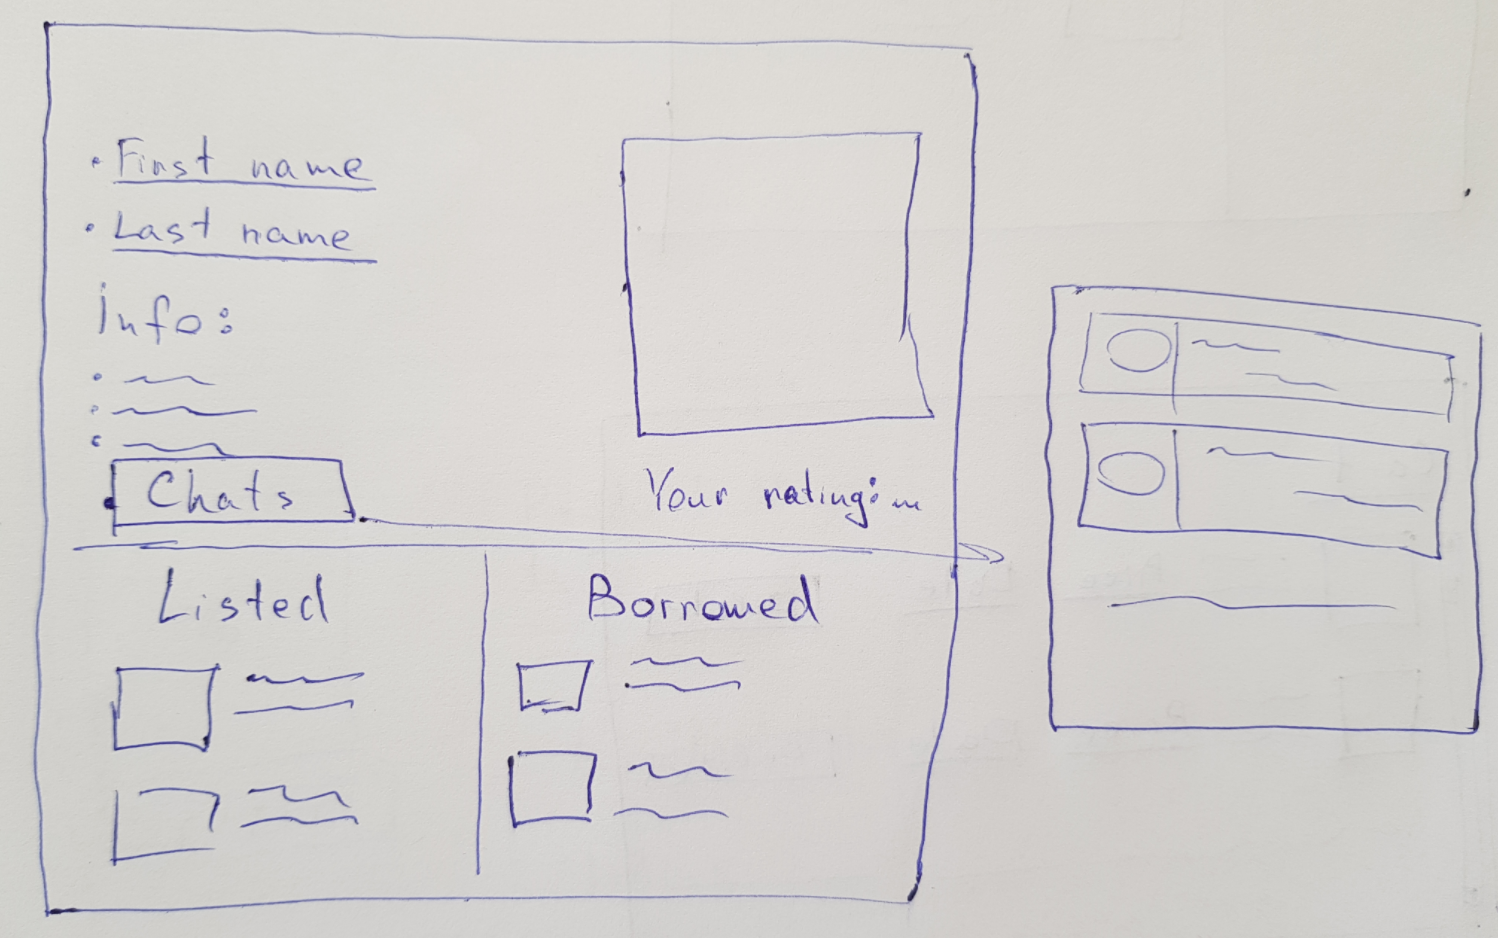 First name
Last name
Info:
Chats
Your rating:
Listed
Borrowed